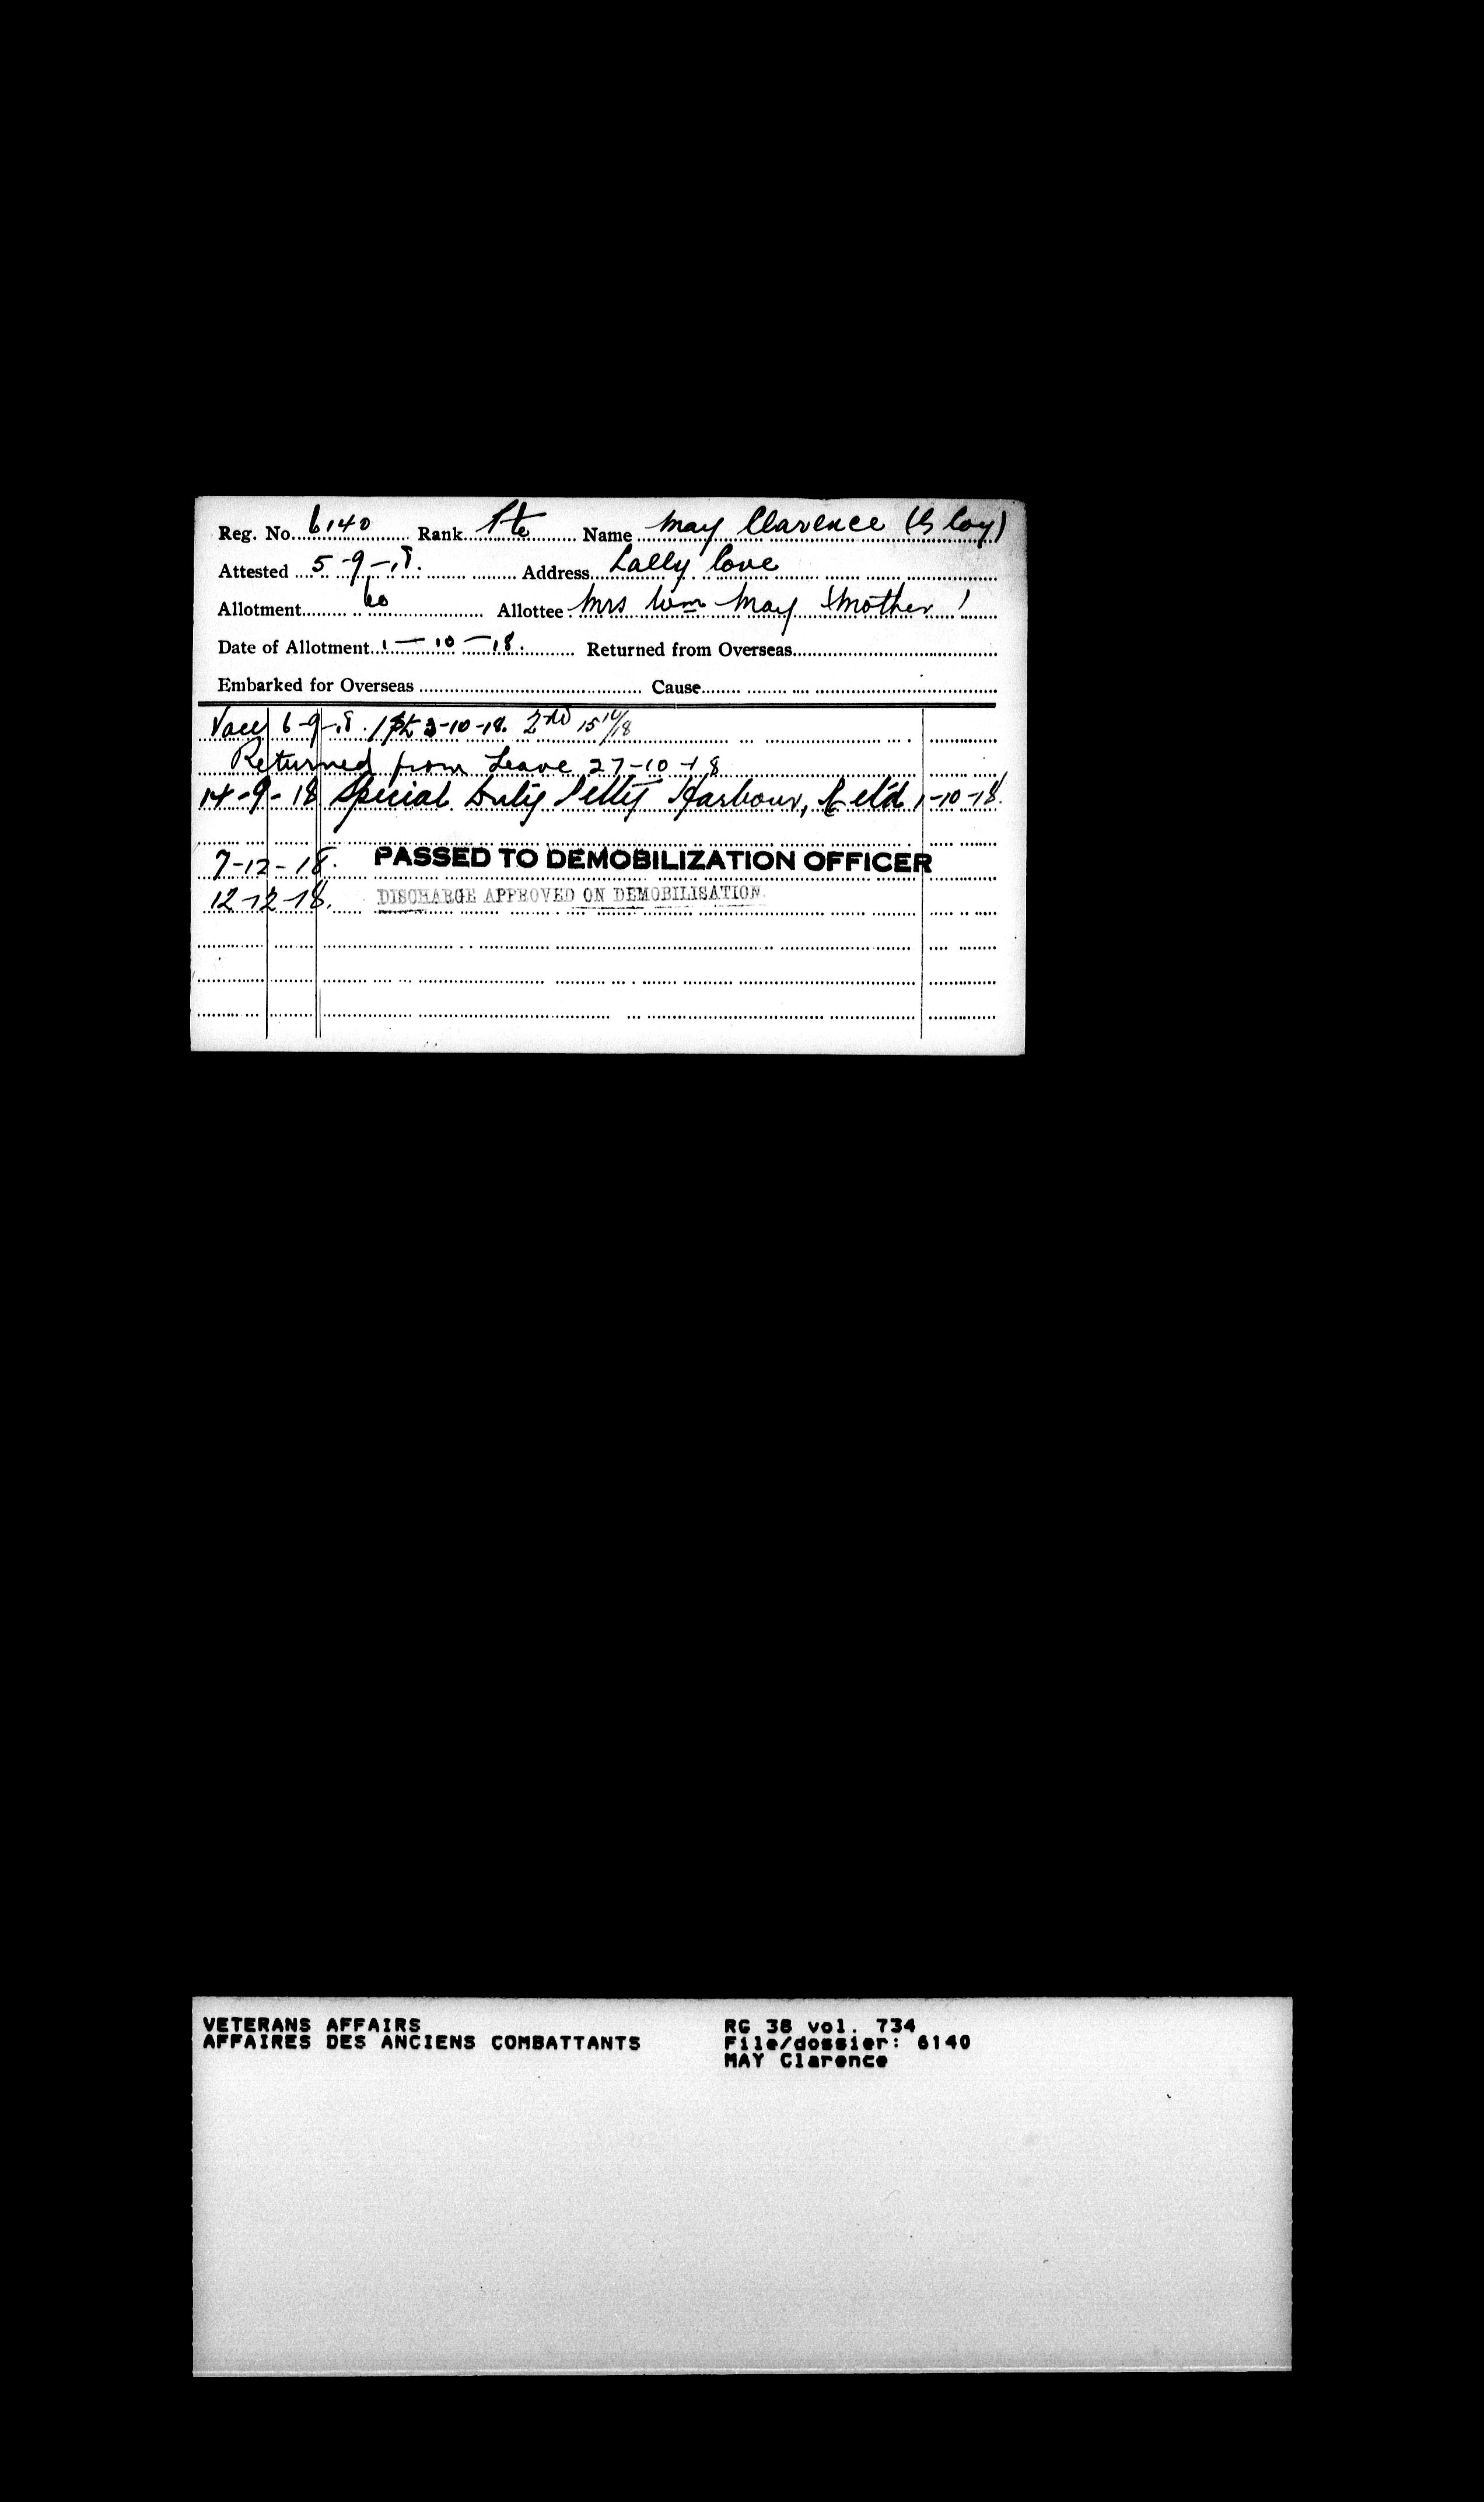 Reg. No. 6140 Rank Pte Name May Clarence (G Coy)
Attested 5-9-18. Address Lally Cove
Allotment 60 Allottee Mrs Wm May (mother)
Date of Allotment 1-10-18. Returned from Overseas
Embarked for Overseas Cause
Vacc 6-9-18. 1st 3-10-18. 2nd 15 10/18
Returned from Leave 27-10-18
14-9-18 Special Duty Petty Harbour, Retd 1-10-18.
7-12-18. PASSED TO DEMOBILIZATION OFFICER
12-12-18. DISCHARGE APPROVED ON DEMOBILISATION.
VETERANS AFFAIRS RG 38 vol. 734
AFFAIRES DES ANCIENS COMBATTANTS File/dossier: 6140
MAY Clarence